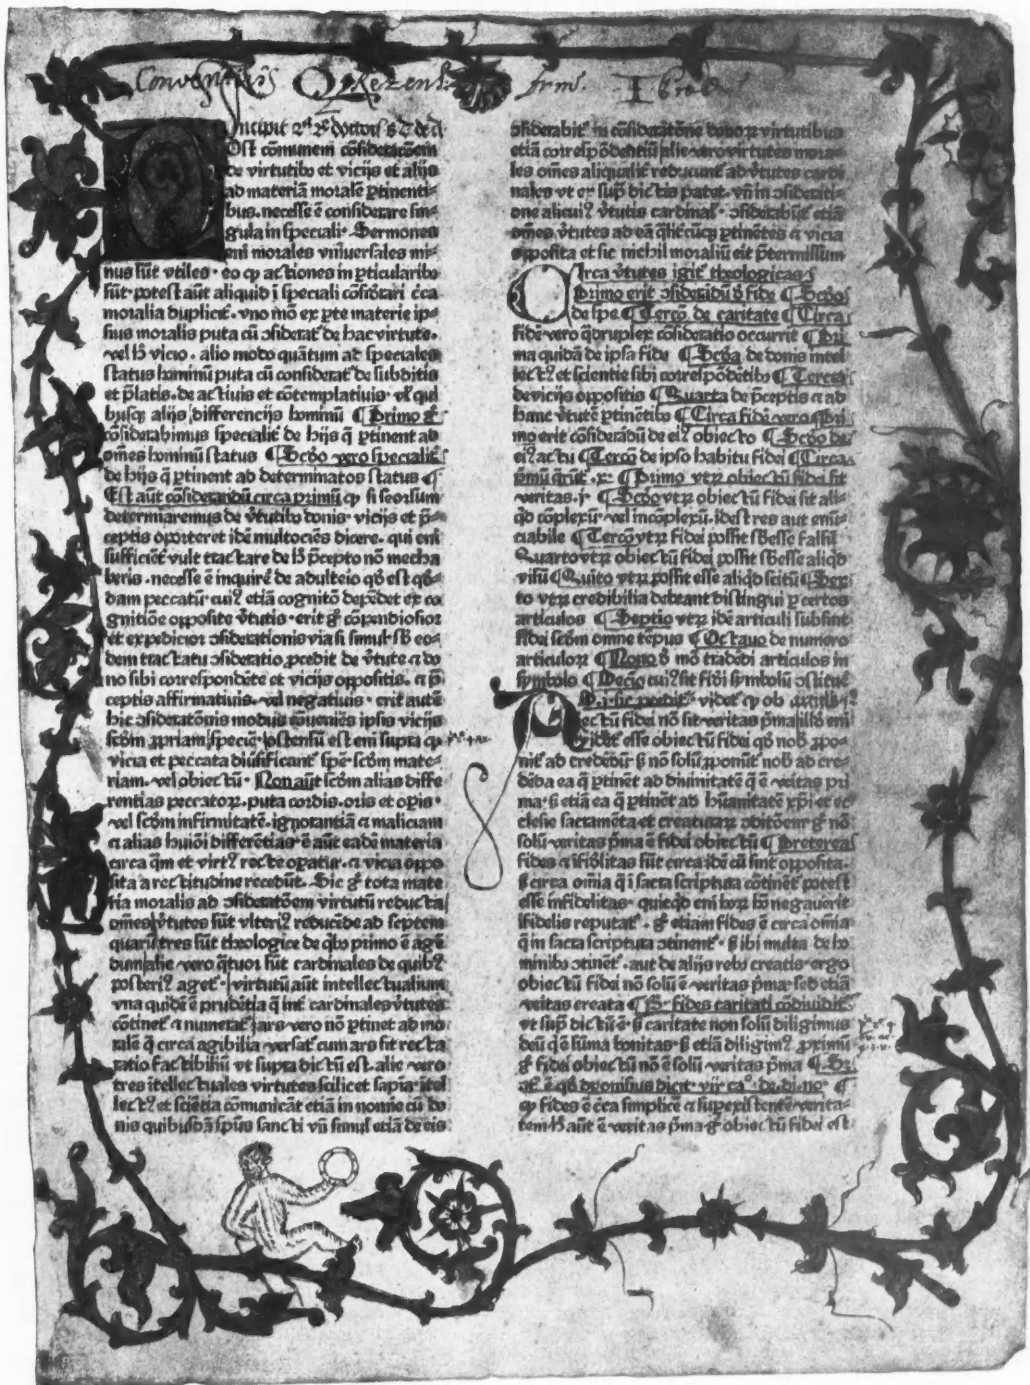 Conventus
Incipit
Ost cōmunem cōsideratōem
de virtutibꝯ et vicijs et alijs
ad materiā moralē ꝑtinenti-
bus. necesse ē considerare sin-
gula in speciali. Sermones
eni morales vniuersales mi-
nus sūt vtiles. eo ꝙ actiones in ꝑticularibꝯ
sūt. potest aūt aliquid ī speciali cōsiderari c̄ca
moralia dupliciť. vno mō ex ꝑte materie ip-
sius moralis puta cū ↄsiderať de hac virtute.
vel h̄ vicio. alio modo quātum ad speciales
status hominū puta cū considerať de subditis
et p̄latis. de actiuis et cōtemplatiuis. vl̓ qui
busqꝫ alijs differencijs hominū ¶ Primo g̊
cōsiderabimus specialiť de hijs q̄ ꝑtinent ad
om̄es hominū status ¶ Scd̓o vero specialiť
de hijs q̄ ꝑtinent ad determinatos status ¶
Est aūt cōsiderandū circa primū ꝙ si seorsum
determiaremus de v̓tutibꝯ donis. vicijs et p̄-
ceptis oporteret idē multociēs dicere. qui eni
sufficiēť vult tractare de h̄ p̄cepto nō mecha
beris. necesse ē inquirē de adulteio qd̓ est qd̓-
dam peccatū. cui⁹ etiā cognitō depēdet ex co
gnitiōe opposite v̓tutis. erit g̊ cōpendiosior
et expedicior ↄsiderationis via si simul sb̓ eo-
dem tractatu ↄsideratio ꝓcedit de v̓tute ⁊ do
no sibi correspondēte et vicijs oppositis. ⁊ p̄-
ceptis affirmatiuis. vel negatiuis. erit autē
hic ↄsideratōnis modus cōueniēs ipsis vicijs
scd̓m ꝓpriam speciē. ostensū est eni supra ꝙ
vicia et peccata diūsificanť spē. scd̓m mate-
riam. vel obiectū. Non aūt scd̓m alias diffe
rentias peccatoꝝ. puta cordis. oris et oꝑis.
vel scd̓m infirmitatē. ignorantiā ⁊ maliciam
⁊ alias huiōi differētias. ē aūt eadē materia
circa q̄m et virt⁹ recte oꝑatur. ⁊ vicia oppo
sita a rectitudine recedūt. Sic g̊ tota mate
ria moralis ad ↄsideratōem virtutū reducta
om̄es v̓tutes sūt vlteri⁹ reducēde ad septem
quarū tres sūt theologice de qb̓ꝯ primo ē agē
dum alie vero q̄tuor sūt cardinales de quib⁹
posteri⁹ ageť. virtutū aūt intellectualium
vna quidē ē prudētia q̄ int̓ cardinales v̓tutes
cōtineť ⁊ numerať ars vero nō ꝑtinet ad mo
ralē q̄ circa agibilia versať cum ars sit recta
ratio factibiliū vt supra dictū est. alie vero
tres ītellectuales virtutes scilicet sapia. ītel
lect⁹ et sciētia cōmunicāt etiā in nomīe cū do
nis quibusdā spūs sancti vn̄ simul etiā de eis
ↄsiderabiť in cōsideratōne donoꝝ virtutibus
etiā correspōdentiū alie vero virtutes mora-
les om̄es aliqualiť reducunť ad v̓tutes cardi
nales vt ex sup̄ dictis patet. vn̄ in ↄsiderati-
one alicui⁹ v̓tutis cardinaľ. ↄsiderabūť etiā
om̄es v̓tutes ad eā q̄liťcūqꝫ ꝑtinētes ⁊ vicia
opposita et sic nichil moraliū eit p̄termissum
Circa v̓tutes igiť theologicas
Primo erit ↄsiderādū d̓ fide ¶ Scd̓o
de spe ¶ Tercō de caritate ¶ Circa
fidē vero q̄druplex cōsideratio occurrit ¶ Pri
ma quidā de ipsa fide ¶ Scd̓a de donis intel
lect⁹ et scientie sibi correspōdētibꝯ ¶ Tercia
de vicijs oppositis ¶ Quarta de p̄ceptis ⁊ ad
hanc v̓tutē ꝑtinētibꝯ ¶ Circa fidē vero ¶ Pri
mo erit cōsiderādū de ei⁹ obiecto ¶ Scd̓o de
ei⁹ actu ¶ Tercō de ipso habitu fidei ¶ Circa
p̄mū q̄rūť .x. ¶ Primo vtꝝ obiectū fidei sit
veritas .j. ¶ Scd̓o vtꝝ obiectū fidei sit ali-
qd̓ cōplexū. vel incōplexū. idest res aut enū-
ciabile ¶ Tercō vtꝝ fidei possit sb̓esse falsū
Quarto vtꝝ obiectū fidei possit sb̓esse aliqd̓
visū ¶ Quīto vtꝝ possit esse aliqd̓ scitū ¶ Sex
to vtꝝ credibilia debeant distingui ꝑ certos
articulos ¶ Septīo vtꝝ idē articuli subsint
fidei scd̓m omne tēpus ¶ Octauo de numero
articuloꝝ ¶ Nono d̓ mō tradēdi articulos in
symbolo ¶ Decīo cui⁹ sit fidei symbolū ↄstitue
Ad p̄. sic ꝓcediť. videť ꝙ ob
iectū fidei nō sit veritas p̄ma illd̓ eni
videť esse obiectū fidei qd̓ nob̓ ꝓpo-
niť ad credēdū. ß nō solū ꝓponūť nob̓ ad cre-
dēda ea q̄ ꝑtinēt ad diuinitatē q̄ ē veitas pri
ma. ß etiā ea q̄ ꝑtinēt ad hūanitatē xp̄i et ec
clesie sacramēta et creaturaꝝ ↄditōem g̊ nō
solū veritas p̄ma ē fidei obiectū ¶ Preterea
fides ⁊ īfid̓litas sūt circa idē cū sint opposita.
ß circa om̄ia q̄ ī sacra scriptura cōtinēť potest
esse infidelitas. quicqd̓ eni hoꝝ ho negauerit
īfidelis reputať. g̊ etiam fides ē circa om̄ia
q̄ in sacra scriptura ↄtinenť. ß ibi multa de ho
minibꝯ ↄtinēť. aut de alijs rebꝯ creatis. ergo
obiectū fidei nō solū ē veritas p̄ma. sed etiā
veitas creata ¶ P. fides caritati cōdiuidiť
vt sup̄ dictū ē. ß caritate non solū diligimus
deū q̄ ē sūma bonitas. ß etiā diligim⁹ ꝓximū
g̊ fidei obiectū nō ē solū veritas p̄ma ¶ Sꝫ
ↄ̄ ē qd̓ dyonisius dicit. vij. ca°. de. di. no. ¶
ꝙ fides ē c̄ca simplicē ⁊ suꝑexistentē verita-
tem. h̄ aūt ē veritas p̄ma. g̊ obiectū fidei est